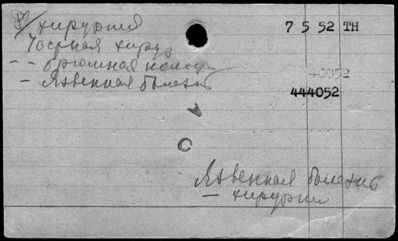 хирургия
7 5 52 TH
хирур
- - брюшная полость
- Язвенная болезнь
40052
444052
Язвенная болезнь
- хирургия